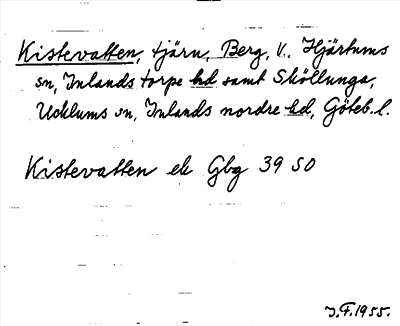 Kistevatten, tjärn, Berg, V. Hjärtums
sn, Inlands torpe hd samt Sköllunga,
Ucklums sn, Inlands nordre hd, Göteb. l.
Kistevatten ek Gbg 39 SO
J.F. 1955.